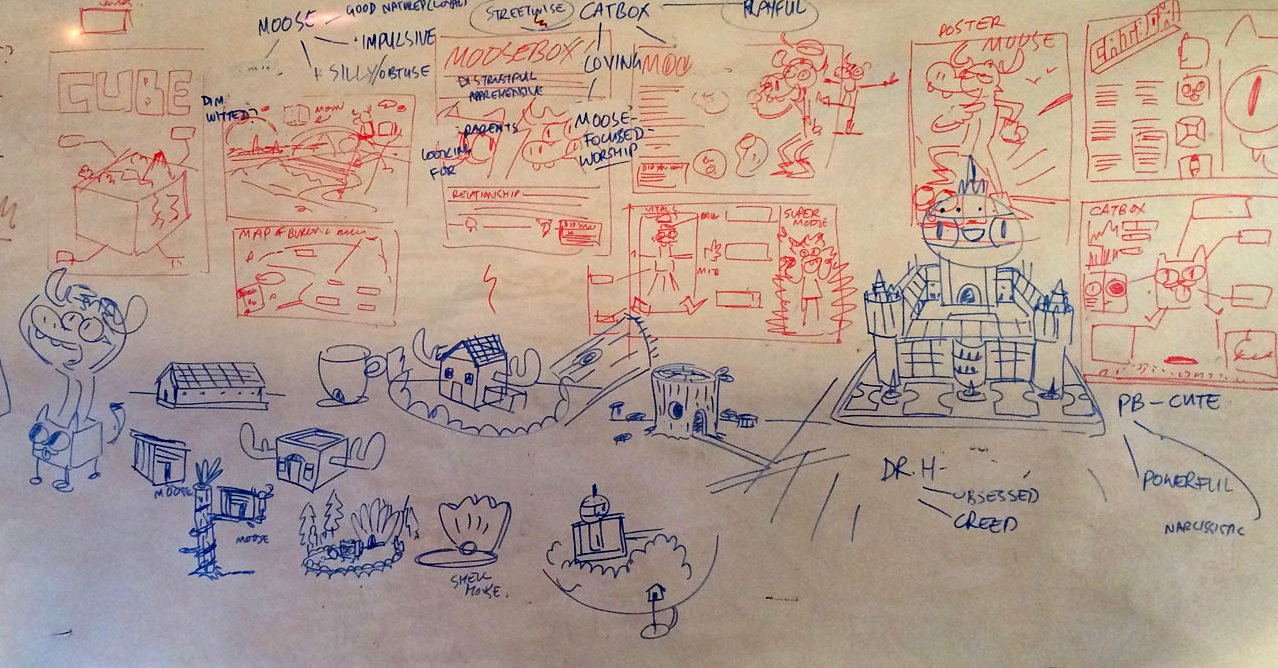 MOOSE
GOOD NATURED (LOYAL)
IMPULSIVE
+ SILLY/OBTUSE
DIM
WITTED
STREETWISE
CATBOX
PLAYFUL
LOVING
MOOSE-
FOCUSED-
WORSHIP
CUBE
MOOSEBOX
DISTRUSTFUL
APPREHENSIVE
PARENTS
LOOKING
FOR
RELATIONSHIP
MOO
DID YOU KNOW
POSTER
MOOSE
MAP OF
VITALS
SUPER
MOOSE
CATBOX
MOOSE
MOOSE
SHELL
HOUSE.
DR. H-
OBSESSED
CREED
PB - CUTE
POWERFUL
NARCISSISTIC